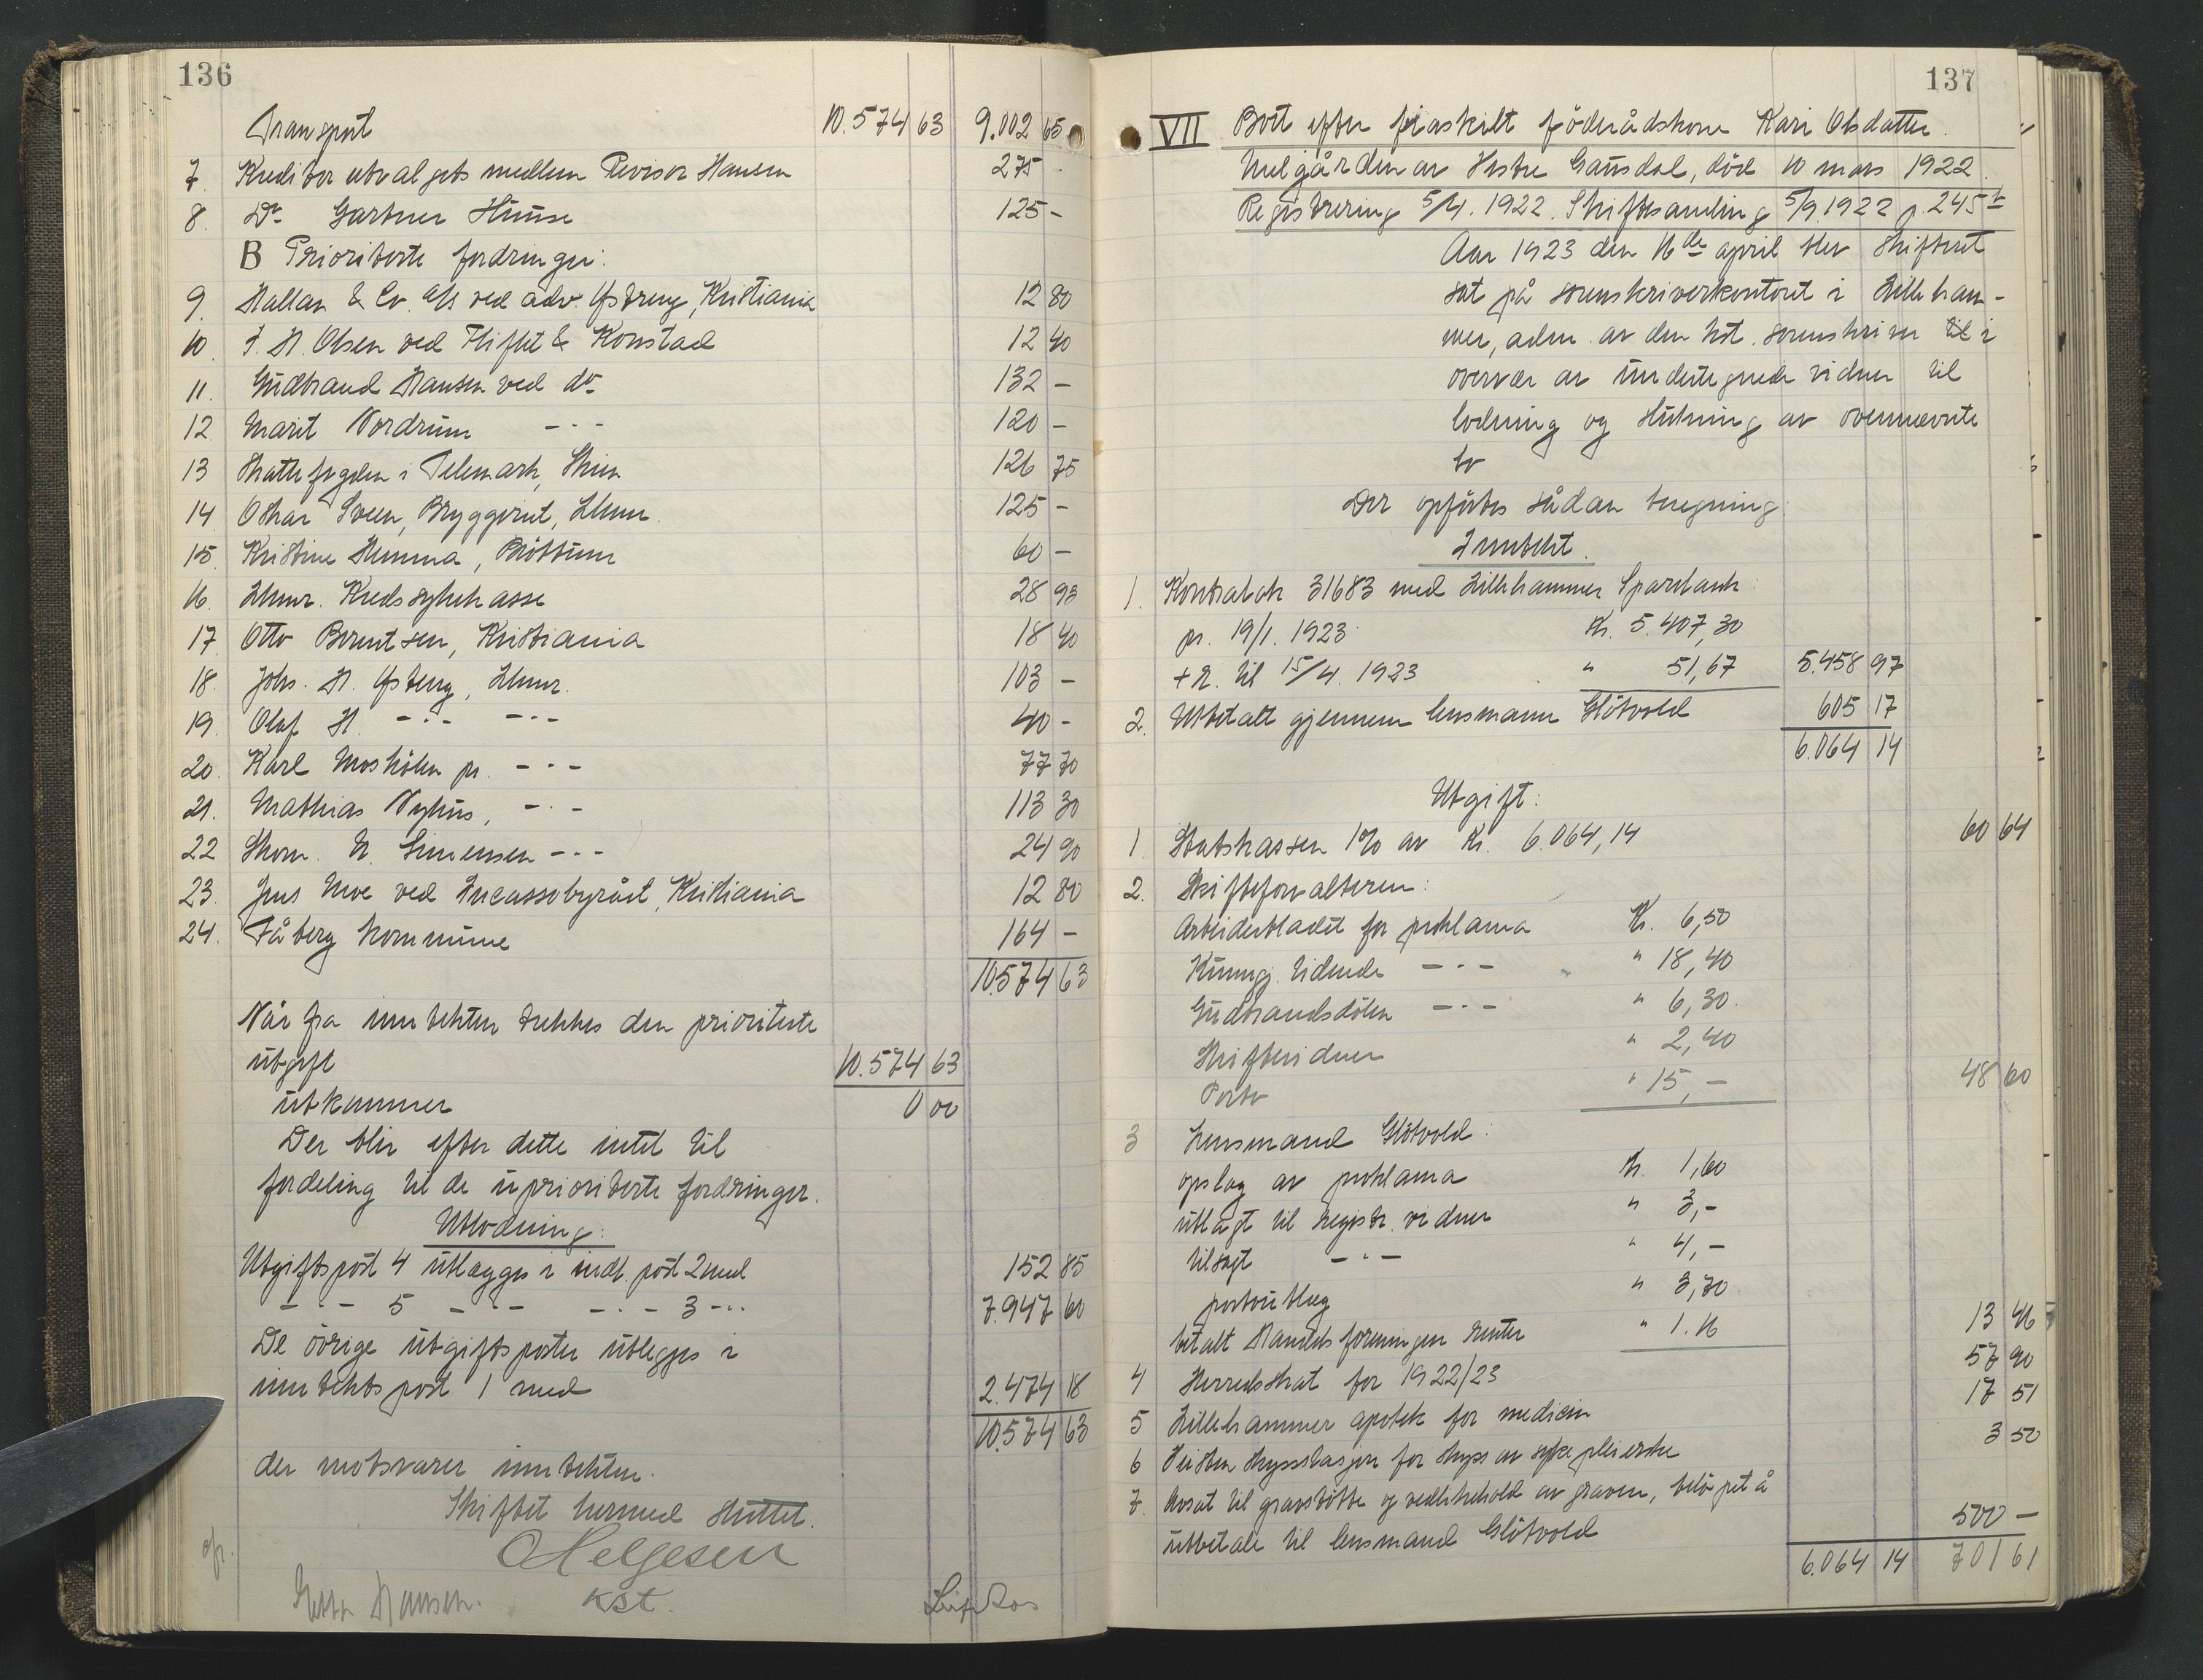 136
Transport 10.574 63 9.002 65
7. Kreditorutvalgets medlem Revisor Hansen 275 -
8. Do Gartner Huuse 125 -
B Prioriterte fordringer:
9. Hallan & Co. A/s ved adv. Ystreng, Kristiania 12 80
10. J. H. Olsen ved Fliflet & Konstad 12 40
11. Gudbrand Hansen ved do 132 -
12. Marit Nordrum -"- 120 -
13 Skattefogden i Telemark, Skien 126 75
14 Oskar Sveen, Bryggeriet, Lhmr. 125 -
15. Kristine Hemma, Bröttum 60 -
16. Lhmr. Kredssykekasse 28 93
17. Otto Berentsen, Kristiania 18 40
18. Johs. H. Ysberg, Lhmr. 103 -
19. Olaf H. -"- -"- 40 -
20. Karl Moshölen pr. -"- 77 70
21. Mathias Nyhus, -"- 113 30
22 Skom. N. Simensen -"- 24 90
23. Jens Moe ved Incassobyrået, Kristiania 12 80
24. Fåberg kommune 164 -
10.574 63
Når fra inntekten trekkes den prioriterte
utgift 10.574 63
utkommer 0 00
Der blir efter dette intet til
fordeling til de uprioriterte fordringer.
Utlodning:
Utgiftspost 4 utlægges i indt. post 2 med 152 85
-"- 5 -"- -"- 3 -"- 7.947 60
De övrige utgiftsposter utlegges i
inntektspost 1 med 2.474 18
10.574 63
der motsvarer inntekten.
Skiftet hermed sluttet.
OHelgesen
kst.
Hansen. Leif Aas
137
VII Boet efter fraskilt föderådskone Kari Olsdatter
Nelgården av Vestre Gausdal, död 10 mars 1922.
Registrering 5/4. 1922. Skiftesamling 5/9 1922 p. 245 b
Aar 1923 den 16de april blev skifteret
sat på sorenskriverkontoret i Lilleham-
mer, adm. av den kst. sorenskriver til i
overvær av undertegnede vidner til
lodning og slutning av ovennævnte
bo
Der opförtes sådan beregning:
Inntekt.
1. Kontrabok 31683 med Lillehammer Sparebank:
pr. 19/1. 1923 Kr. 5.407,30
+ R. til 15/4. 1923 " 51,67 5.458 97
2. Utbetalt gjennem lensmann Glötvold 605 17
6.064 14
Utgift:
1. Statskassen 1% av Kr. 6.064,14 60 64
2. Skifteforvalteren:
Arbeiderbladet for proklama Kr. 6,50
Kunngj. tidende -"- " 18,40
Gudbrandsdölen -"- " 6,30.
Skiftevidner " 2,40
Porto " 15,- 48 60
3 Lensmand Glötvold:
opslag av proklama Kr. 1,60
utlagt til registr. vidner " 3,-
tilsagt -"- " 4,-
portoutlæg " 3,70.
betalt Handelsforeningen renter " 1.16 13 46
4 Herredskat for 1922/23 57 90
5 Lillehammer apotek for medicin 17 51
6 Veisten skysstasjon for skyss av sykepleierske 3 50
7. Avsat til gravstötte og vedlikehold av graven, belöpet å
utbetale til lensmand Glötvold 500 -
6.064 14 701 61